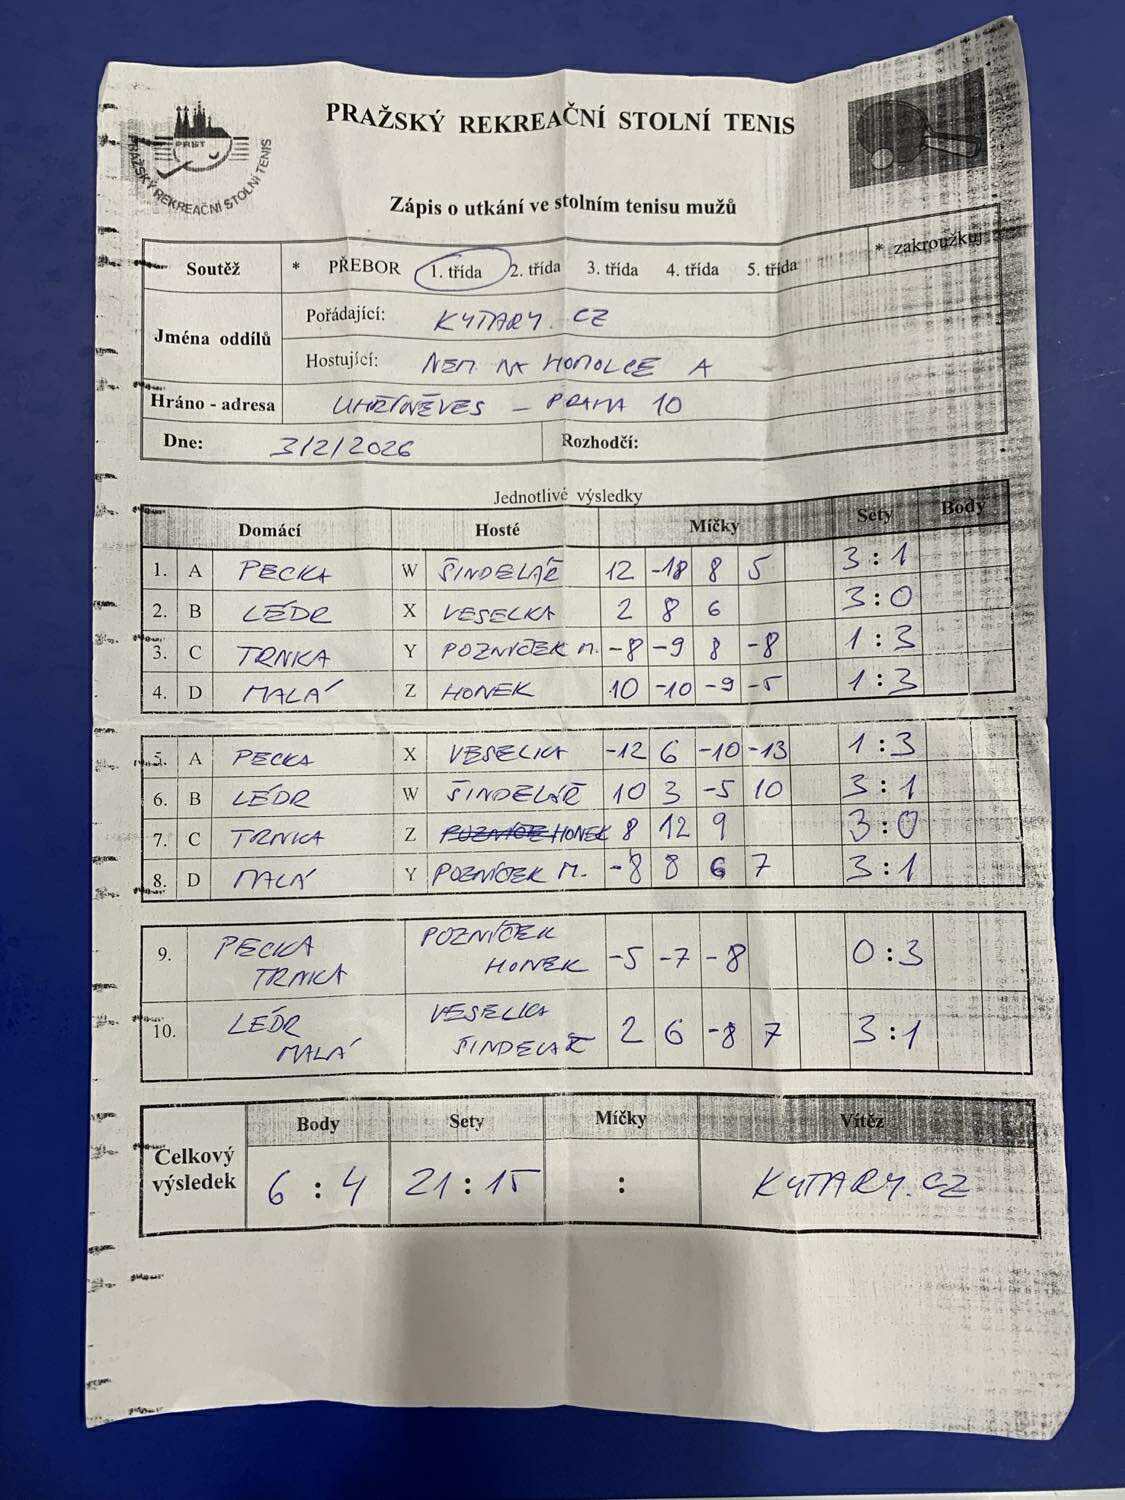 PRAŽSKÝ REKREAČNÍ STOLNÍ TENIS
PRST
PRAŽSKÝ REKREAČNÍ STOLNÍ TENIS
Zápis o utkání ve stolním tenisu mužů
Soutěž * PŘEBOR 1. třída 2. třída 3. třída 4. třída 5. třída * zakroužkuj
Jména oddílů
Pořádající: KYTARY.CZ
Hostující: NEM NA HOMOLCE A
Hráno - adresa UHŘÍNĚVES - PRAHA 10
Dne: 3/2/2026 Rozhodčí:
Jednotlivé výsledky
Domácí Hosté Míčky Sety Body
1. A PECKA W ŠINDELÁŘ 12 -18 8 5 3:1
2. B LÉDR X VESELKA 2 8 6 3:0
3. C TRNKA Y POZNÍČEK M. -8 -9 8 -8 1:3
4. D MALÁ Z HONEK 10 -10 -9 -5 1:3
5. A PECKA X VESELKA -12 6 -10 -13 1:3
6. B LÉDR W ŠINDELÁŘ 10 3 -5 10 3:1
7. C TRNKA Z HONEK 8 12 9 3:0
8. D MALÁ Y POZNÍČEK M. -8 8 6 7 3:1
9. PECKA TRNKA POZNÍČEK HONEK -5 -7 -8 0:3
10. LÉDR MALÁ VESELKA ŠINDELÁŘ 2 6 -8 7 3:1
Celkový výsledek
Body Sety Míčky Vítěz
6 : 4 21 : 15 : KYTARY.CZ